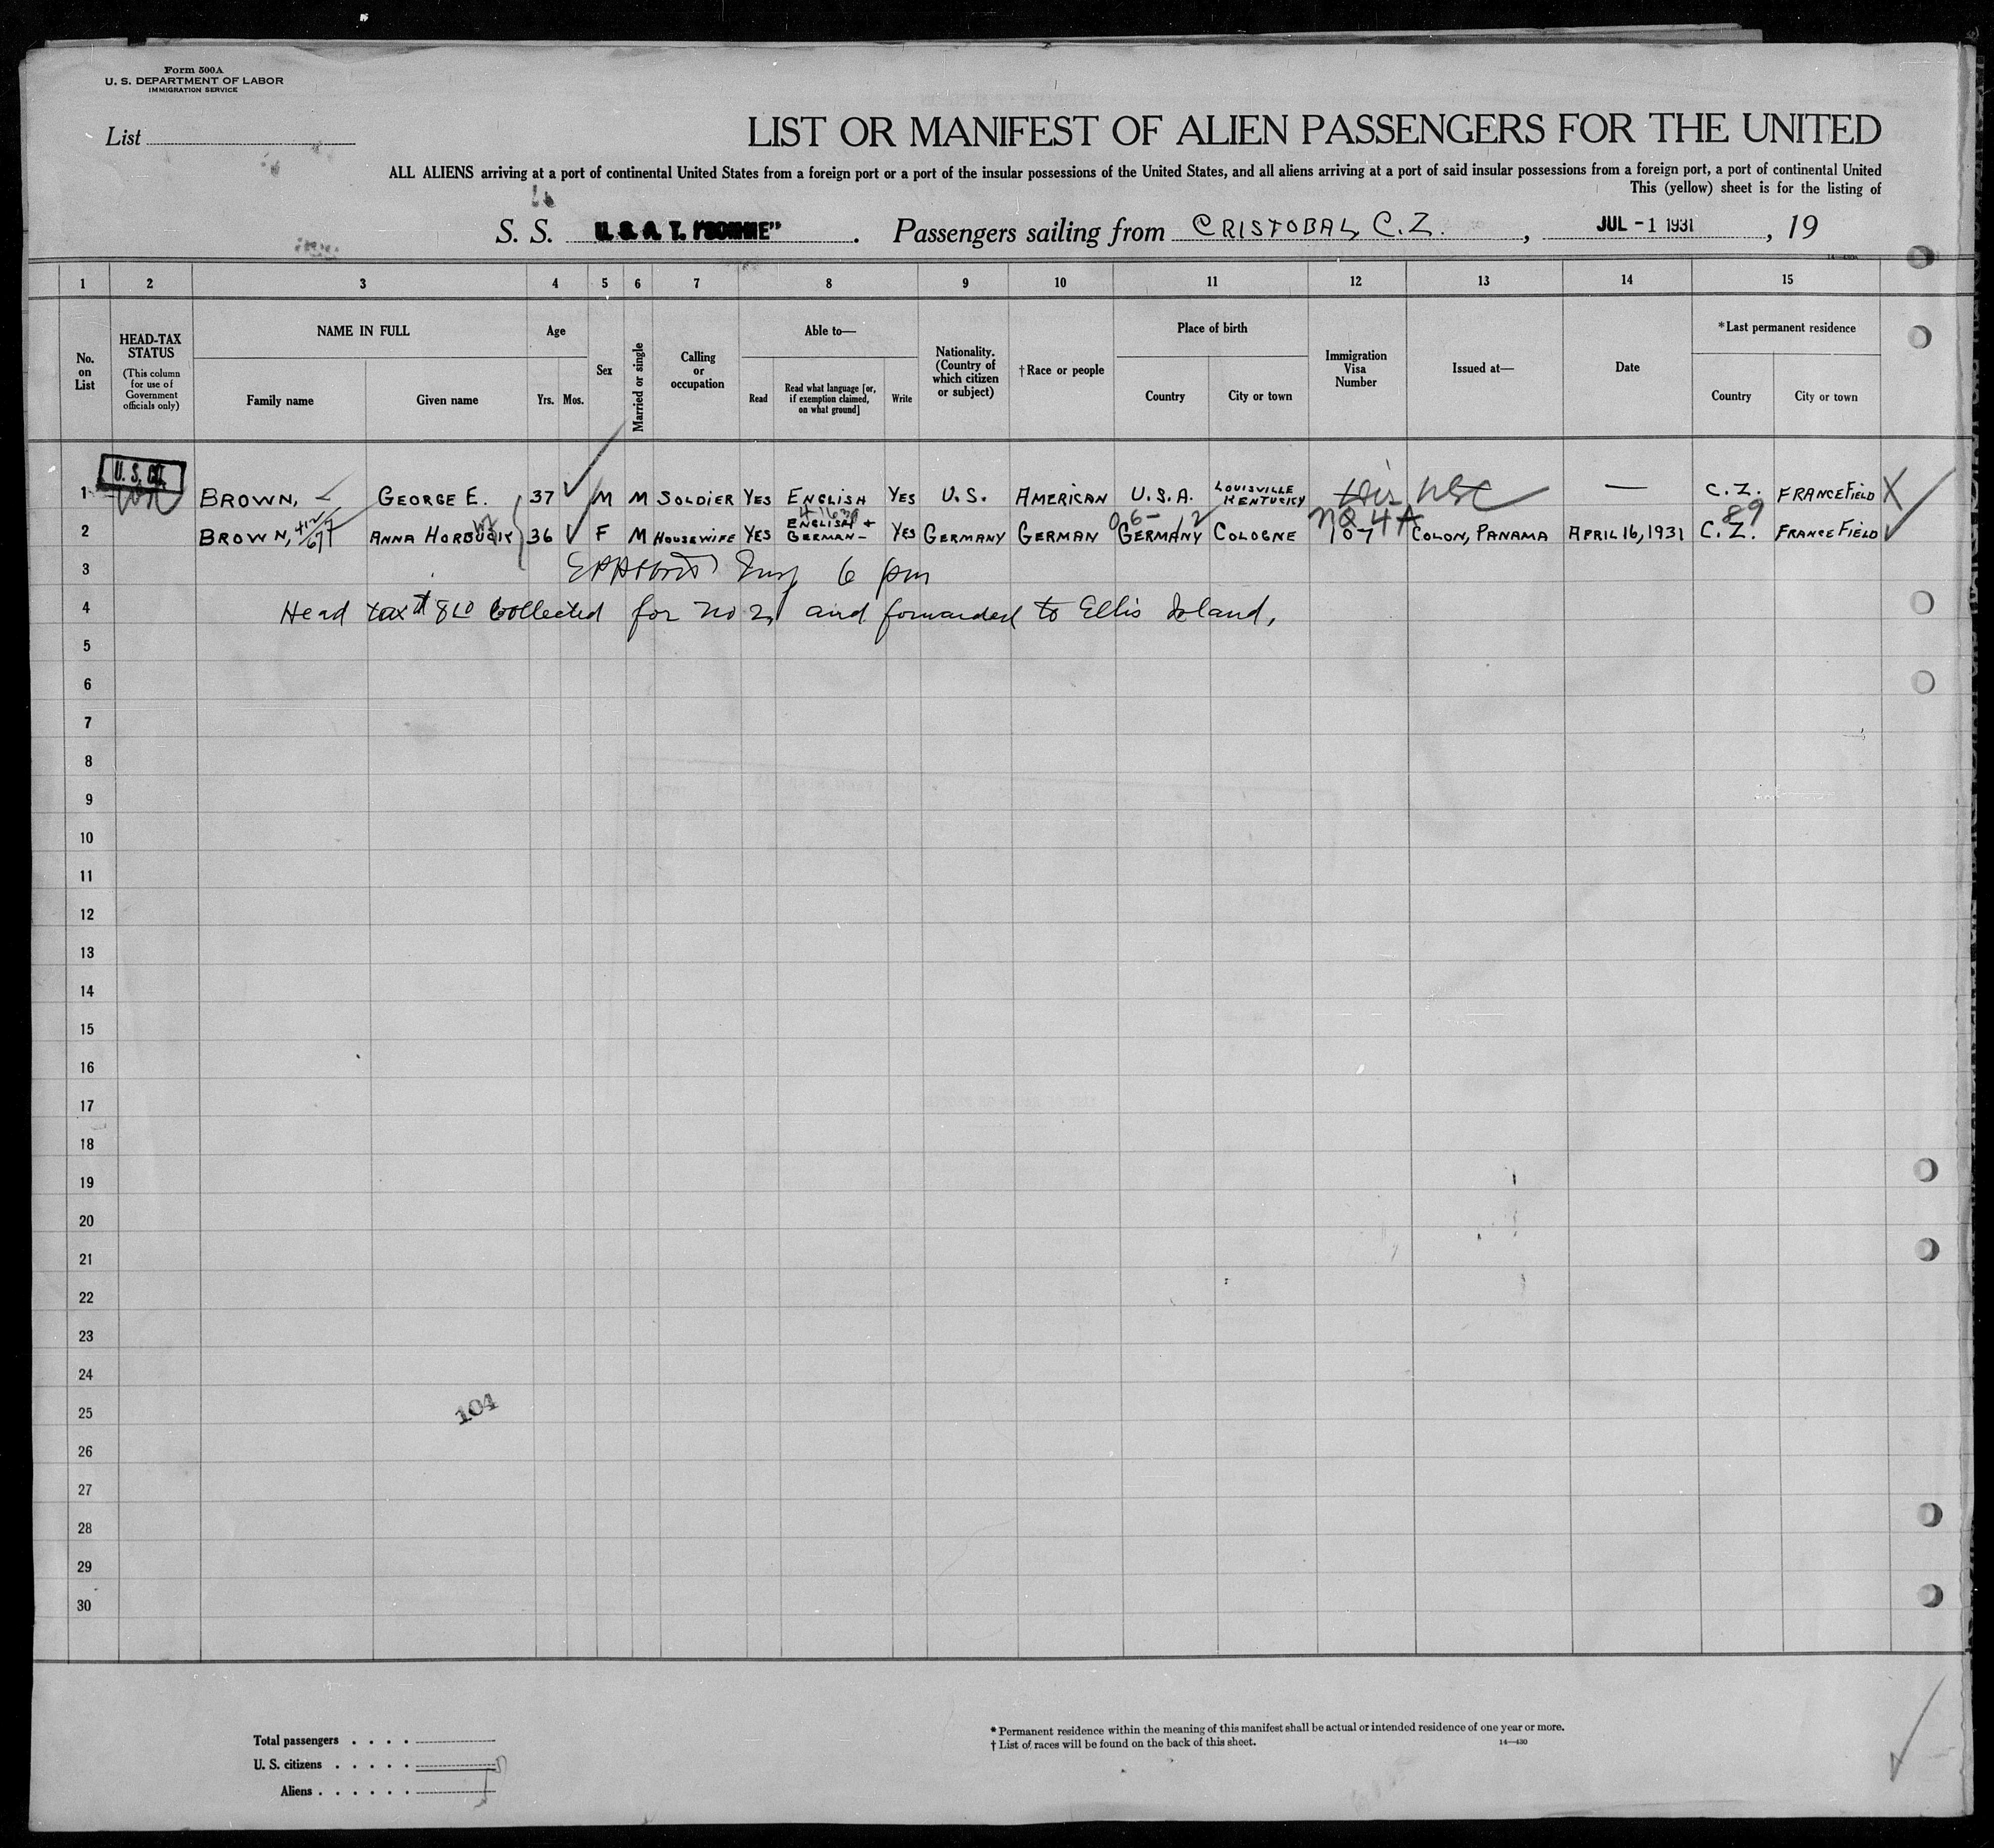 Form 500A
U. S. DEPARTMENT OF LABOR
IMMIGRATION SERVICE
List
LIST OR MANIFEST OF ALIEN PASSENGERS FOR THE UNITED
ALL ALIENS arriving at a port of continental United States from a foreign port or a port of the insular possessions of the United States, and all aliens arriving at a port of said insular possessions from a foreign port, a port of continental United
This (yellow) sheet is for the listing of
S. S. U. S. A. T. "SOMME". Passengers sailing from CRISTOBAL, C.Z., JUL -1 1931, 19
1 2 3 4 5 6 7 8 9 10 11 12 13 14 15
No. on List
HEAD-TAX STATUS
(This column for use of Government officials only)
NAME IN FULL
Family name
Given name
Age
Yrs.
Mos.
Sex
Married or single
Calling or occupation
Able to—
Read
Read what language [or, if exemption claimed, on what ground]
Write
Nationality. (Country of which citizen or subject)
† Race or people
Place of birth
Country
City or town
Immigration Visa Number
Issued at—
Date
* Last permanent residence
Country
City or town
U. S. CIT.
1 BROWN, GEORGE E. 37 M M SOLDIER YES ENGLISH YES U.S. AMERICAN U.S.A. LOUISVILLE KENTUCKY — C.Z. FRANCE FIELD X
89
2 BROWN, ANNA 36 F M HOUSEWIFE YES ENGLISH + GERMAN - YES GERMANY GERMAN GERMANY COLOGNE COLON, PANAMA APRIL 16, 1931 C.Z. FRANCE FIELD
3 6 pm
4 Head tax collected for no 2, and forwarded to Ellis Island,
5
6
7
8
9
10
11
12
13
14
15
16
17
18
19
20
21
22
23
24
25
104
26
27
28
29
30
Total passengers . . . .
U. S. citizens . . . . .
Aliens . . . . . .
* Permanent residence within the meaning of this manifest shall be actual or intended residence of one year or more.
† List of races will be found on the back of this sheet.
14—430